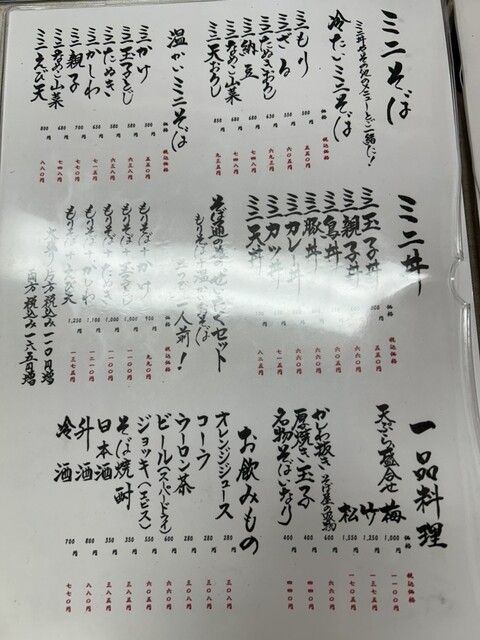 ミニそば
ミニ丼やその他のメニューとご一緒に!
冷たいミニそば 価格 税込価格
ミニもり 500円 五五〇円
ミニざる 550円 六〇五円
ミニたぬきおろし 630円 六九三円
ミニ納豆 680円 七四八円
ミニなめこ山菜 680円 七四八円
ミニ天おろし 850円 九三五円
温かいミニそば 価格 税込価格
ミニかけ 500円 五五〇円
ミニ玉子とじ 580円 六三八円
ミニたぬき 580円 六三八円
ミニかしわ 650円 七一五円
ミニ親子 700円 七七〇円
ミニなめこ山菜 680円 七四八円
ミニえび天 800円 八八〇円
ミニ丼 価格 税込価格
ミニ玉子丼 500円 五五〇円
ミニ親子丼 六六〇円
ミニ鳥丼 六六〇円
ミニ豚丼 六六〇円
ミニカレー丼 六〇五円
ミニカツ丼 七一五円
ミニ天丼 八二五円
そば通のぜいたくセット
もりそば+温かいおそば 二つで一人前!
価格 税込価格
もりそば+かけ 900円 九九〇円
もりそば+玉子とじ 1,000円 一一〇〇円
もりそば+たぬき 1,000円 一一〇〇円
もりそば+かしわ 1,100円 一二一〇円
もりそば+えび天 1,250円 一三七五円
大盛り/片方税込み一一〇円増
両方税込み一六五円増
一品料理 価格 税込価格
天ぷら盛合せ 梅 1,000円 一一〇〇円
竹 1,250円 一三七五円
松 1,550円 一七〇五円
かしわ抜き そば屋の吸物 600円 六六〇円
厚焼き玉子 400円 四四〇円
名物そばいなり 400円 四四〇円
お飲みもの 価格 税込価格
オレンジジュース 280円 三〇八円
コーラ 280円 三〇八円
ウーロン茶 280円 三〇八円
ビール(スーパードライ) 600円 六六〇円
ジョッキ(エビス) 550円 六〇五円
そば焼酎 350円 三八五円
日本酒 350円 三八五円
升酒 800円 八八〇円
冷酒 700円 七七〇円